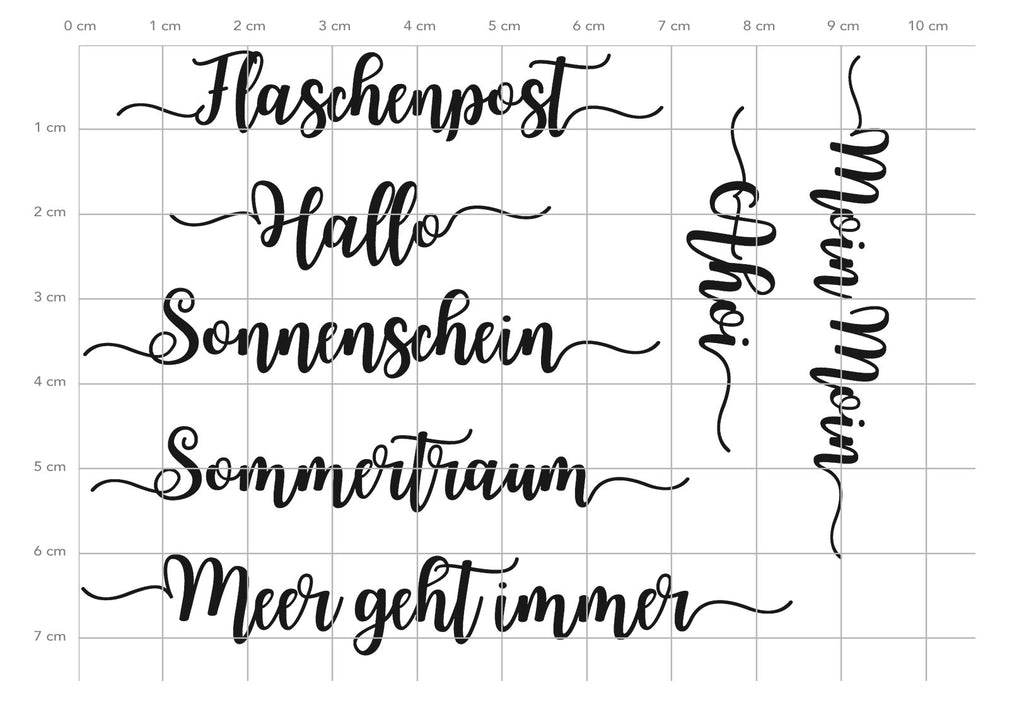 0 cm 1 cm 2 cm 3 cm 4 cm 5 cm 6 cm 7 cm 8 cm 9 cm 10 cm
Flaschenpost
1 cm
Hallo
2 cm
Sonnenschein
3 cm
4 cm
Sommertraum
5 cm
6 cm
Meer geht immer
7 cm
Ahoi
Moin Moin